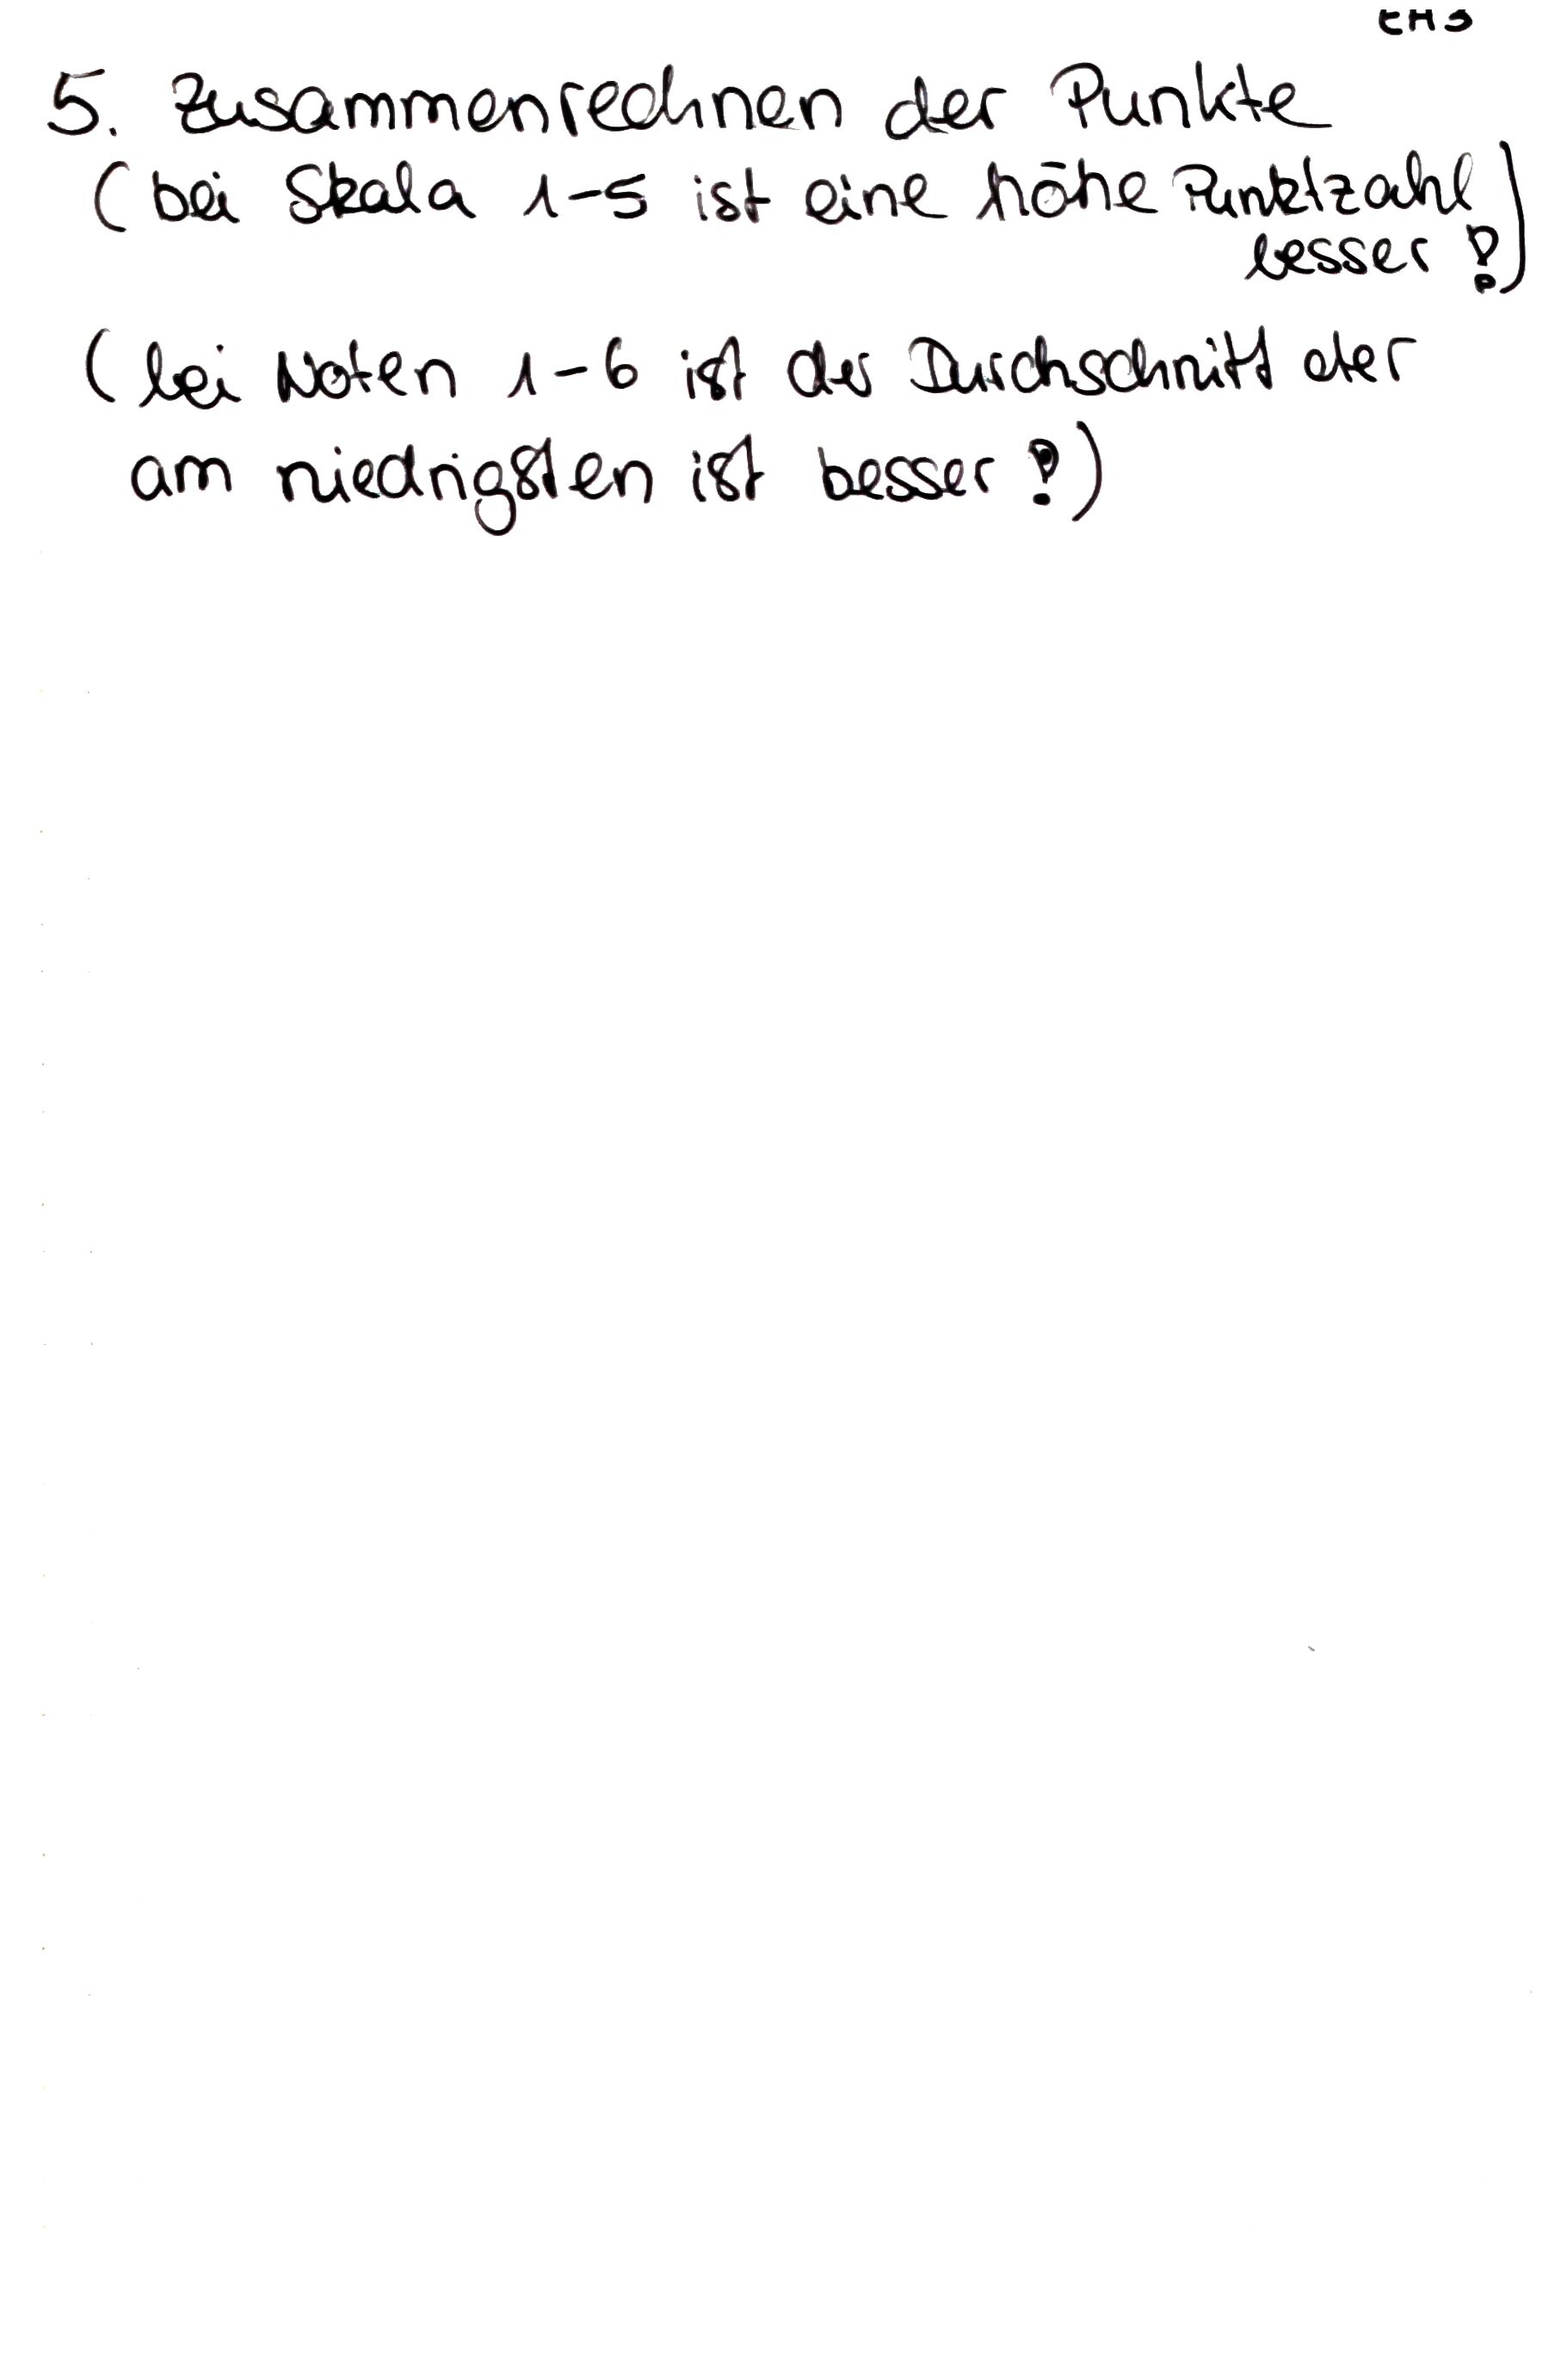 5. Zusammenrechnen der Punkte
(bei Skala 1-5 ist eine höhe Punktzahl
besser?)
(bei Noten 1-6 ist der Durchschnitt der
am niedrigsten ist besser?)